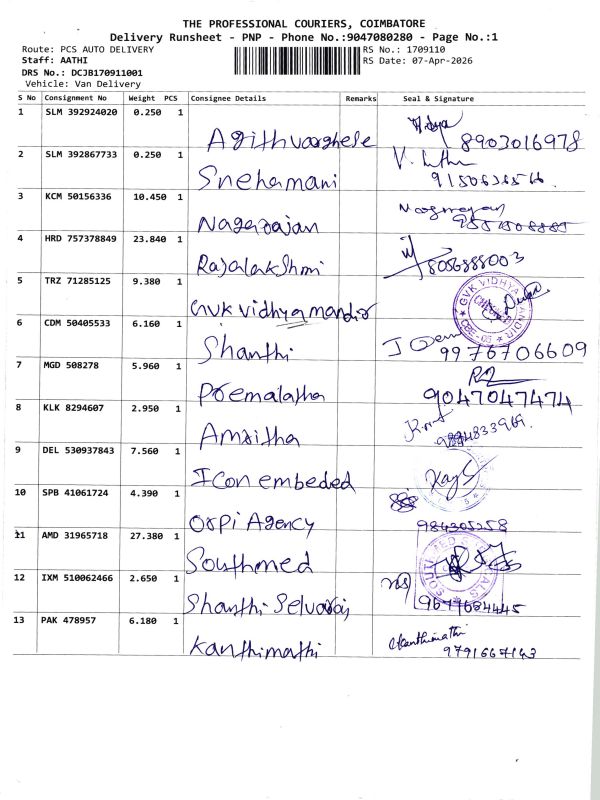 THE PROFESSIONAL COURIERS, COIMBATORE
Delivery Runsheet - PNP - Phone No.:9047080280 - Page No.:1
Route: PCS AUTO DELIVERY RS No.: 1709110
Staff: AATHI RS Date: 07-Apr-2026
DRS No.: DCJB170911001
Vehicle: Van Delivery
S No Consignment No Weight PCS Consignee Details Remarks Seal & Signature
1 SLM 392924020 0.250 1
Agithvarghese 8903016978
2 SLM 392867733 0.250 1
Snehamani
3 KCM 50156336 10.450 1
Nagarajan
4 HRD 757378849 23.840 1
Rajalakshmi 8056888003
5 TRZ 71285125 9.380 1
GVK vidhya mandir GVK VIDHYA MANDIR
6 CDM 50405533 6.160 1
Shanthi 9976706609
7 MGD 508278 5.960 1
Premalatha 9047047474
8 KLK 8294607 2.950 1
Amritha
9 DEL 530937843 7.560 1
Icon embeded
10 SPB 41061724 4.390 1
Orpi Agency 984305258
11 AMD 31965718 27.380 1
Southmed
12 IXM 510062466 2.650 1
Shanthi Selvaraj 9677684445
13 PAK 478957 6.180 1
Kanthimathi Kanthimathi
9791667143